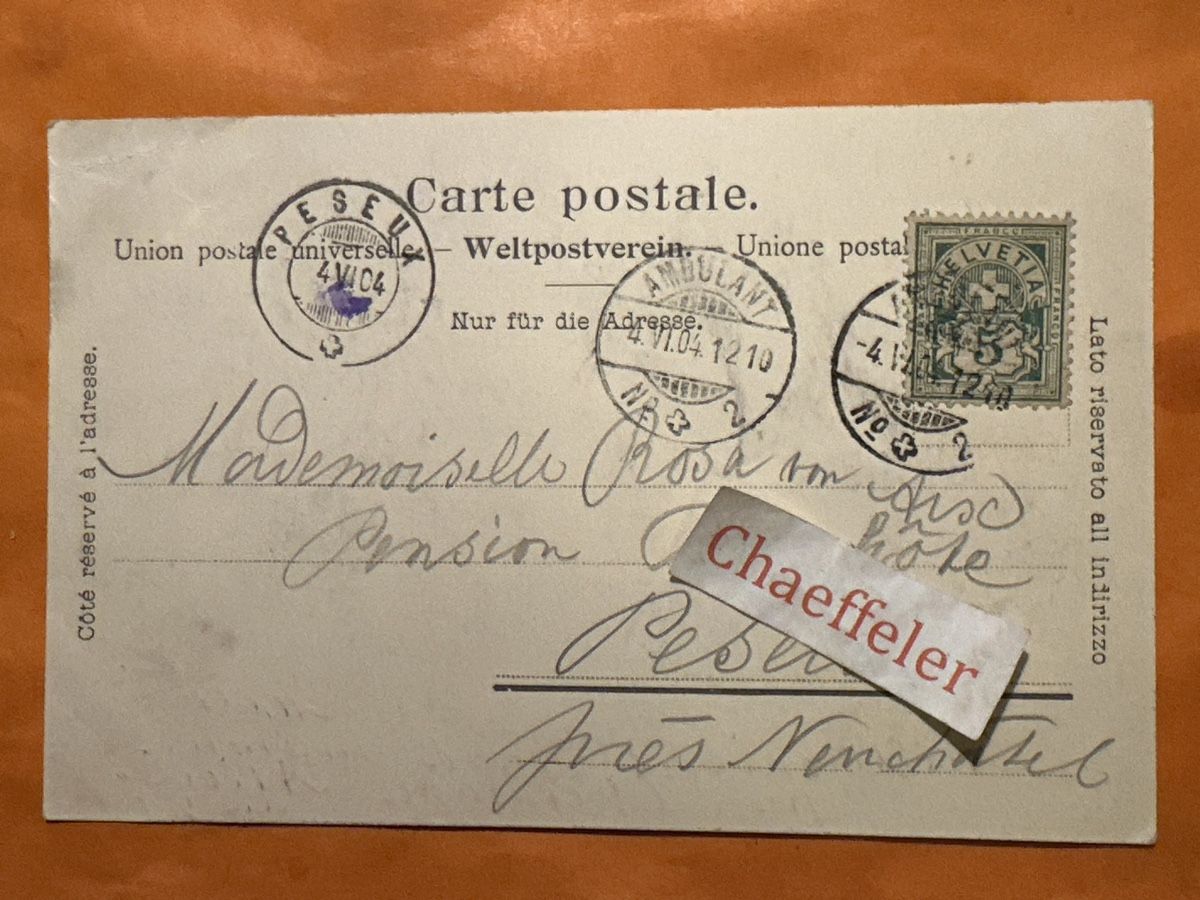 Carte postale.
Union postale universelle. — Weltpostverein. — Unione postal
Nur für die Adresse.
PESEUX
4 VI 04
AMBULANT
4.VI.04.1210
No 2
-4.VI.04.1210
No 2
FRANCO
HELVETIA
FRANCO
5
Côté réservé à l'adresse.
Lato riservato all indirizzo
Mademoiselle Rosa von Arx
Pension
Chaeffeler
près Neuchâtel